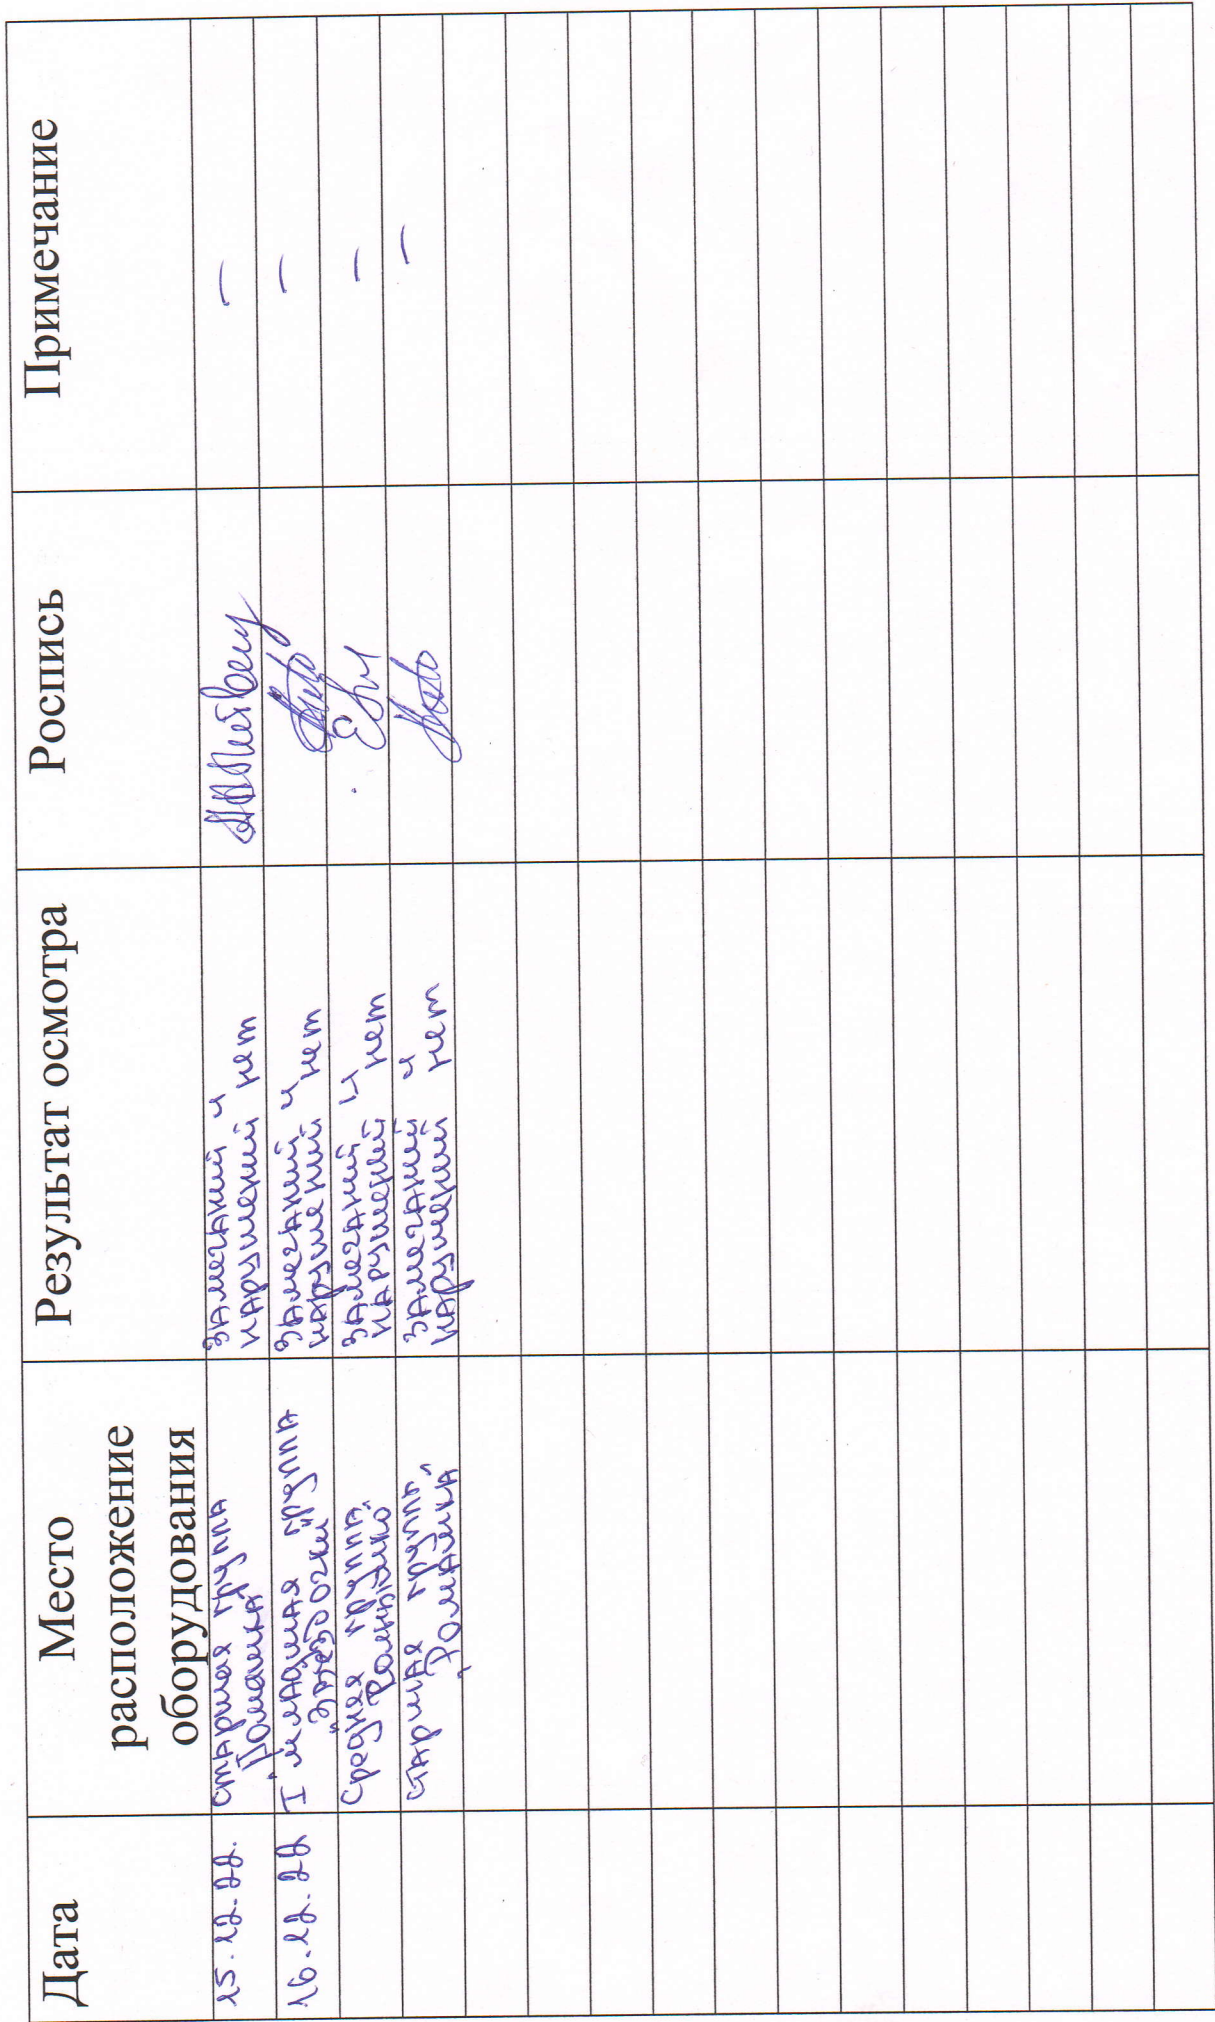 Дата
Место
расположение
оборудования
Результат осмотра
Роспись
Примечание
15.12.22.
старшая группа
"Ромашка
замечаний и
нарушений нет
–
16.12.22
I младшая группа
"Звёздочки"
замечаний и
нарушений нет
–
Средняя группа
"Солнышко"
замечаний и
нарушений нет
–
старшая группа
"Ромашка"
замечаний и
нарушений нет
–